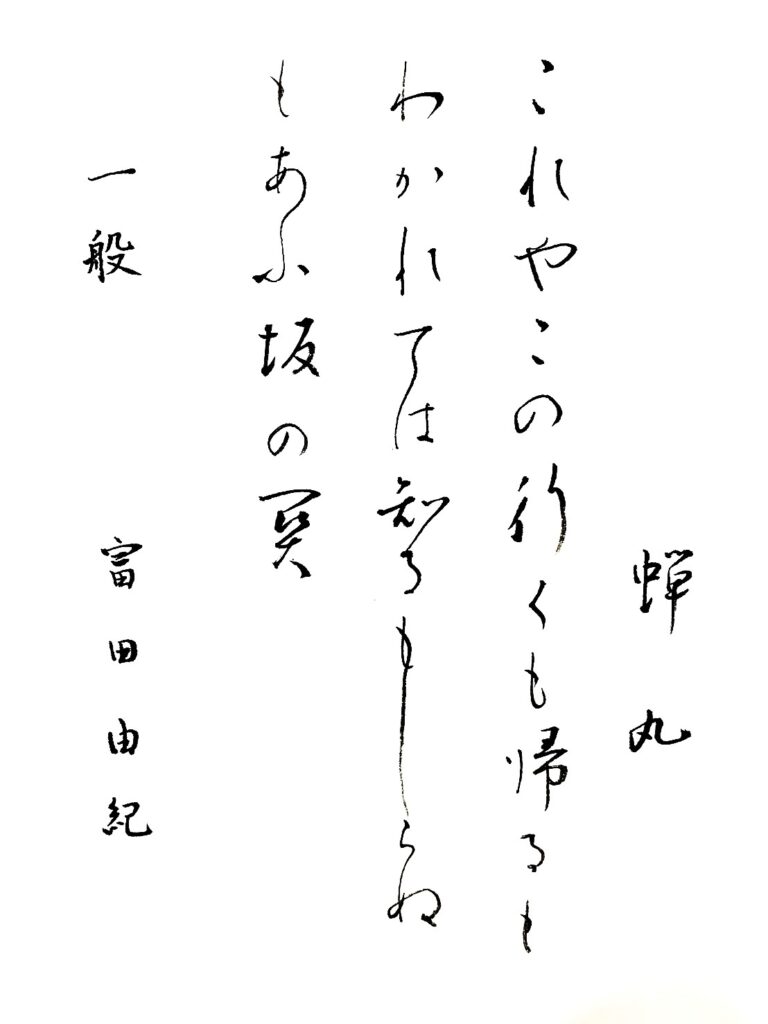 蝉丸
これやこの行くも帰るも
わかれては知るもしらぬ
もあふ坂の関
一般 富田由紀